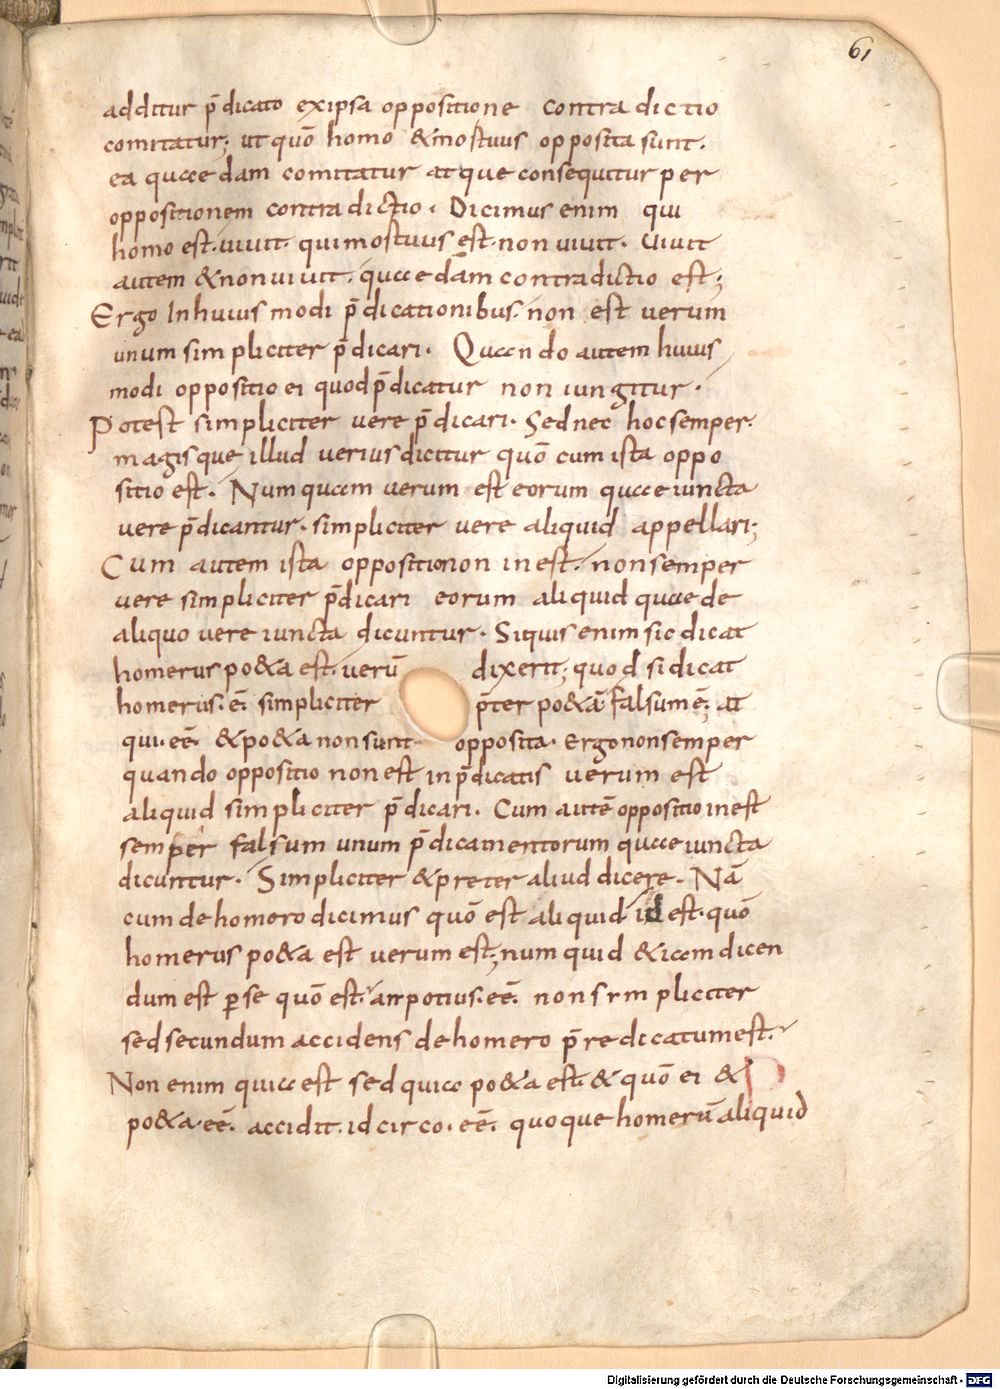 61
additur p̄dicato exipsa oppositione contradictio
comitatur; ut quō homo &mostuus opposita sunt.
ea quaedam comitatur atque consequitur per
oppositionem contradictio. Dicimus enim qui
homo est. uiuit. qui mostuus est. non uiuit. Uiuit
autem & non uiuit. quaedām contradictio est;
Ergo Inhuius modi p̄dicationibus. non est uerum
unum simpliciter p̄dicari. Quando autem huius
modi oppositio ei quod p̄dicatur non iungitur.
Potest simpliciter uere p̄dicari. Sed nec hoc semper.
magisque illud uerius dicitur quō cum ista oppo
sitio est. Numquam uerum est eorum quae iuncta
uere p̄dicantur. simpliciter uere aliquid appellari;
Cum autem ista oppositio non inest. non semper
uere simpliciter p̄dicari eorum aliquid quae de
aliquo uere iuncta dicuntur. Siquis enim sic dicat
homerus po&a est. uerū dixerit; quod si dicat
homerus. ē. simpliciter p̄ter po&ā falsum ē; at
qui. eē. & po&a non sunt opposita. Ergo non semper
quando oppositio non est in p̄dicatis uerum est
aliquid simpliciter p̄dicari. Cum autē oppositio inest
semper falsum unum p̄dicamentorum quae iuncta
dicuntur. Simpliciter & preter aliud dicere. Nā
cum de homero dicimus quō est aliquid id est. quō
homerus po&a est uerum est; num quid & iam dicen
dum est p̱ se quō est. an potius. eē. non simpliciter
sed secundum accidens de homero p̄redicatum est.
Non enim quia est sed quia po&a est. & quō ei &
po&a. eē. accidit. id circo. eē. quoque homerū aliquid
Digitalisierung gefördert durch die Deutsche Forschungsgemeinschaft - DFG